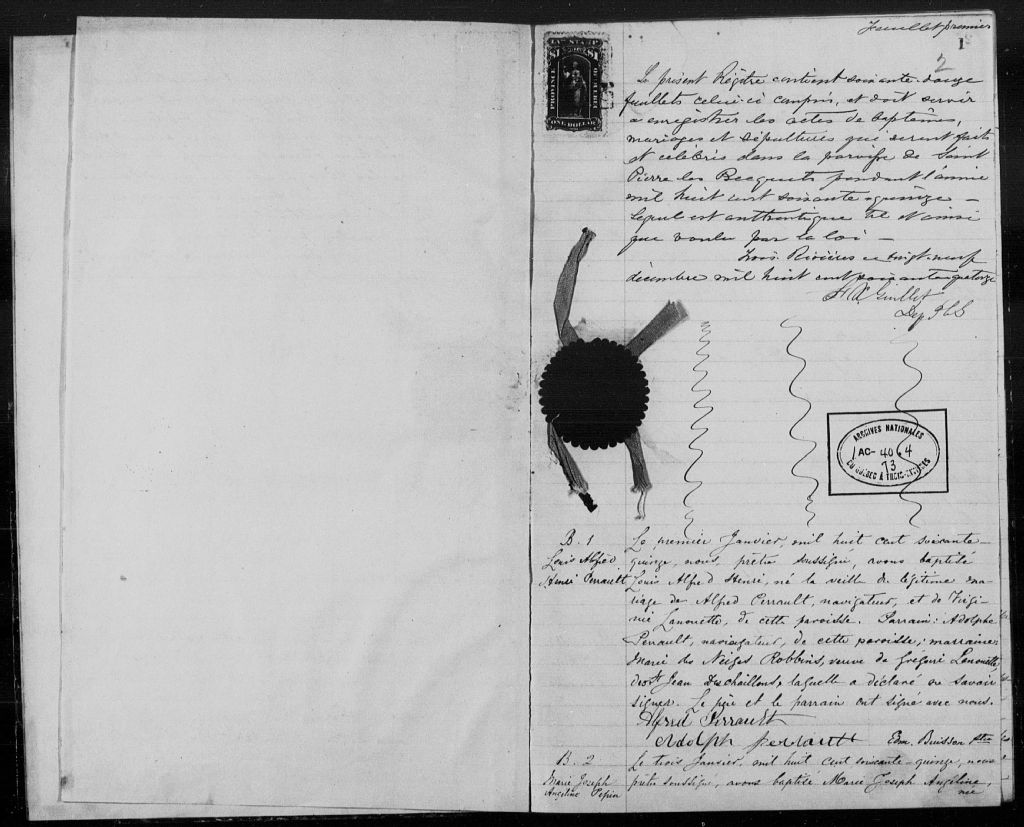 Feuillet premier
1
2
LAW STAMP
$1 $1
PROVINCE OF QUEBEC
ONE DOLLAR
Le présent Régitre contient soixante-douze
feuillets celui-ci compris, et doit servir
a enregistrer les actes de baptêmes,
mariages et sépultures qui seront faits
et célébrés dans la paroisse de Saint
Pierre les Becquets pendant l'année
mil huit cent soixante-quinze —
Lequel est authentique tel et ainsi
que voulu par la loi —
Trois Rivières ce vingt-neuf
décembre mil huit cent soixante-quatorze
Guillet
Dep P C S
ARCHIVES NATIONALES
AC- 40.4
73
DU QUÉBEC À TROIS-RIVIÈRES
B. 1
Louis Alfred
Henri Perrault
Le premier Janvier, mil huit cent soixante-
quinze, nous, prêtre soussigné, avons baptisé
Louis Alfred Henri, né la veille du légitime ma-
riage de Alfred Perrault, navigateur, et de Virgi-
nie Lanouette, de cette paroisse. Parrain: Adolphe
Perrault, navigateur, de cette paroisse; marraine:
Marie des Neiges Robbins, veuve de Grégoire Lanouette,
de St Jean Deschaillons, laquelle a déclaré ne savoir
signer. Le père et le parrain ont signé avec nous.
Alfred Perrault
Adolph perrault Edm. Buisson Ptre
B. 2
Marie Joseph
Angéline Pepin
Le trois Janvier, mil huit cent soixante-quinze, nous
prêtre soussigné, avons baptisé Marie Joseph Angéline,
née